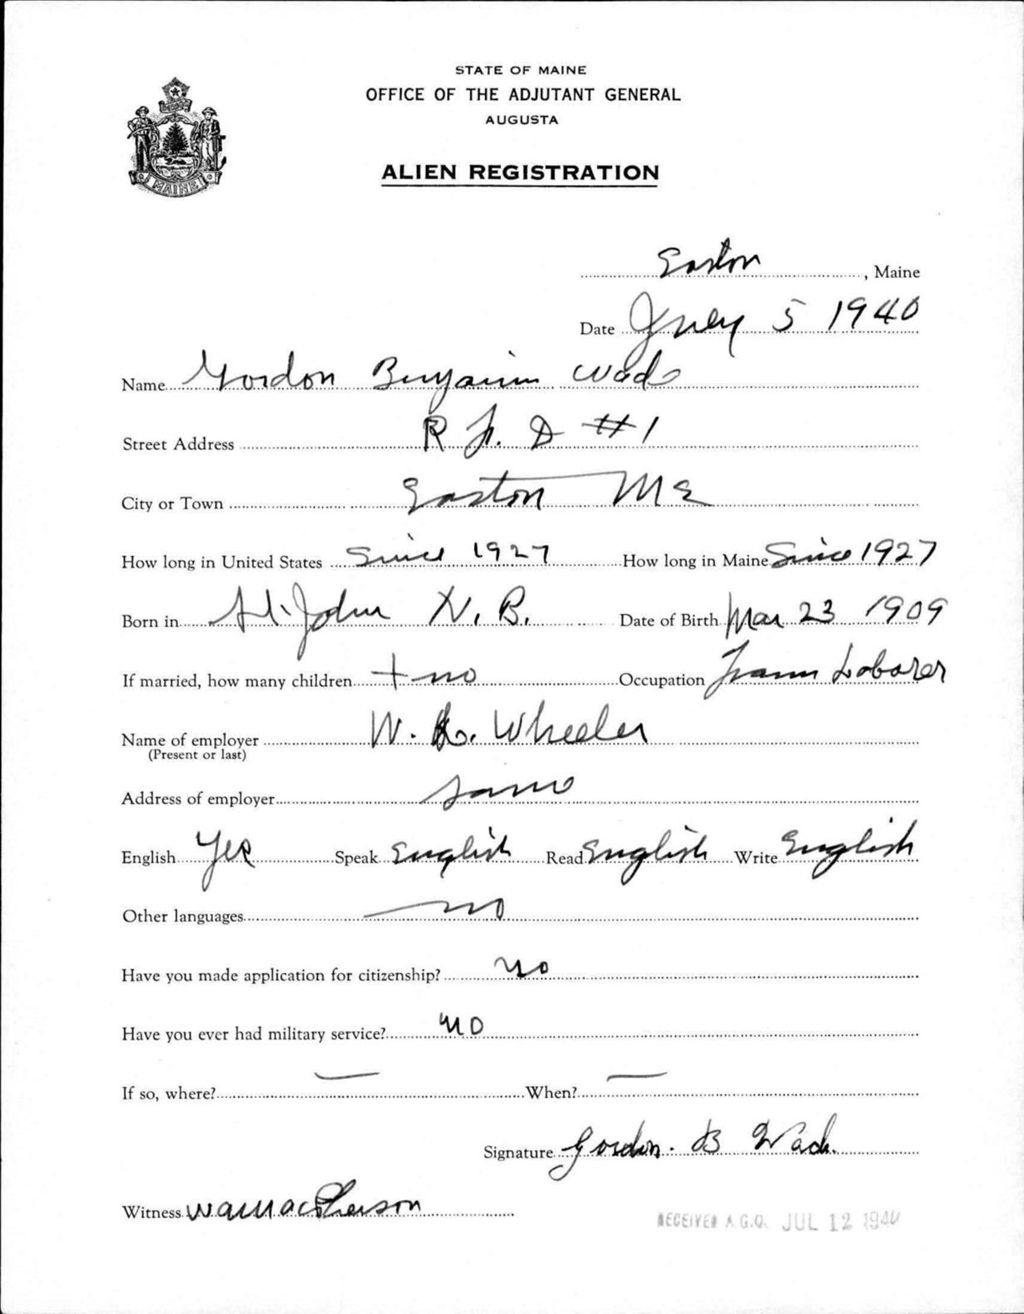 STATE OF MAINE
OFFICE OF THE ADJUTANT GENERAL
AUGUSTA
ALIEN REGISTRATION
MAINE
Easton, Maine
Date July 5 1940
Name Gordon Benjamin Wade
Street Address R F. D #1
City or Town Easton Me
How long in United States Since 1927 How long in Maine Since 1927
Born in St. John N. B. Date of Birth Mar 23 1909
If married, how many children no Occupation Farm Laborer
Name of employer W. Wheeler
(Present or last)
Address of employer Same
English Yes Speak English Read English Write English
Other languages no
Have you made application for citizenship? no
Have you ever had military service? no
If so, where? — When? —
Signature Gordon. B Wade.
Witness MacPherson
RECEIVED A.G.O. JUL 12 1940